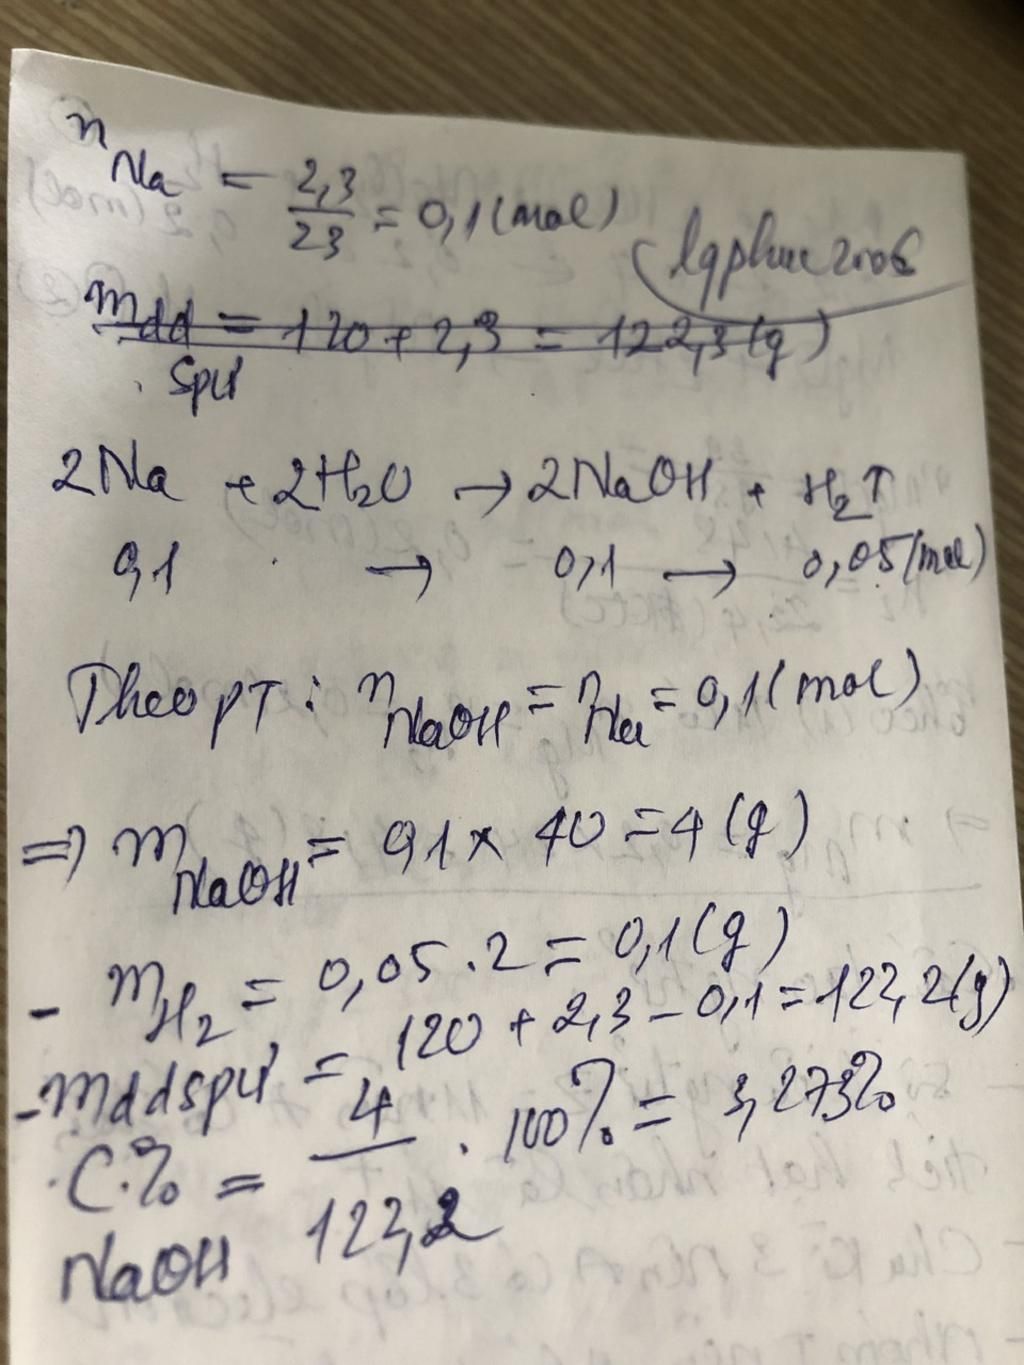 n Na = 2,3 / 23 = 0,1 (mol)
lgphuc2006
mdd = 120 + 2,3 = 122,3 (g)
spứ
2Na + 2H₂O → 2NaOH + H₂↑
0,1 → 0,1 → 0,05 (mol)
Theo PT : n NaOH = n Na = 0,1 (mol)
=> m NaOH = 0,1 x 40 = 4 (g)
- m H₂ = 0,05 . 2 = 0,1 (g)
- mddspứ = 120 + 2,3 - 0,1 = 122,2 (g)
C% NaOH = 4 / 122,2 . 100% = 3,273%